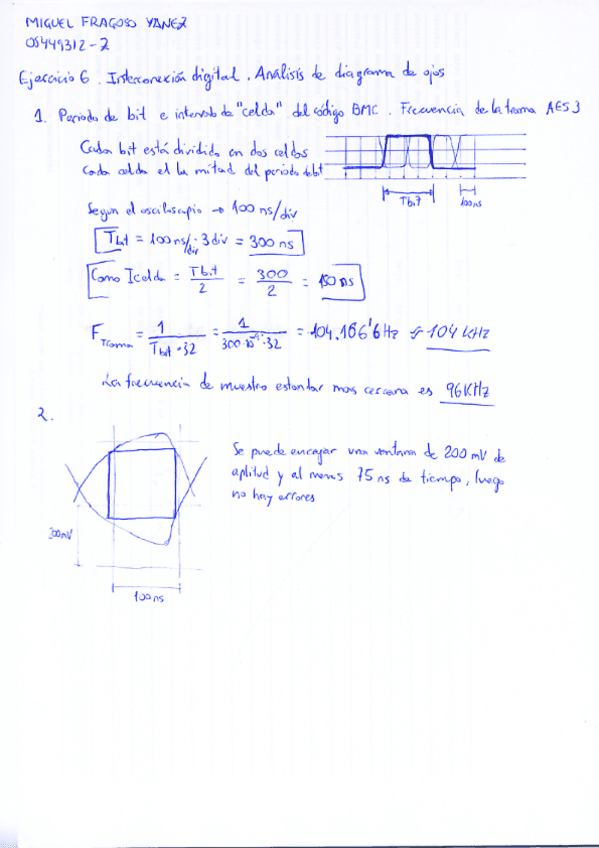 MIGUEL FRAGOSO YANEZ
05449312-Z
Ejercicio 6. Interconexión digital. Análisis de diagrama de ojos
1. Periodo de bit e intervalo de "celda" del código BMC. Frecuencia de la trama AES3
Cada bit está dividido en dos celdas
cada celda el la mitad del periodo de bit
Tbit
100ns
Segun el osciloscopio → 100 ns/div
Tbit = 100 ns/div · 3 div = 300 ns
Como Tcelda = Tbit/2 = 300/2 = 150 ns
F Trama = 1/(Tbit·32) = 1/(300·10⁻⁹·32) = 104.166'6 Hz ≈ 104 KHz
La frecuencia de muestro estandar mas cercana es 96KHz
2.
Se puede encajar una ventana de 200 mV de
aplitud y al menos 75 ns de tiempo, luego
no hay errores
300mV
100ns